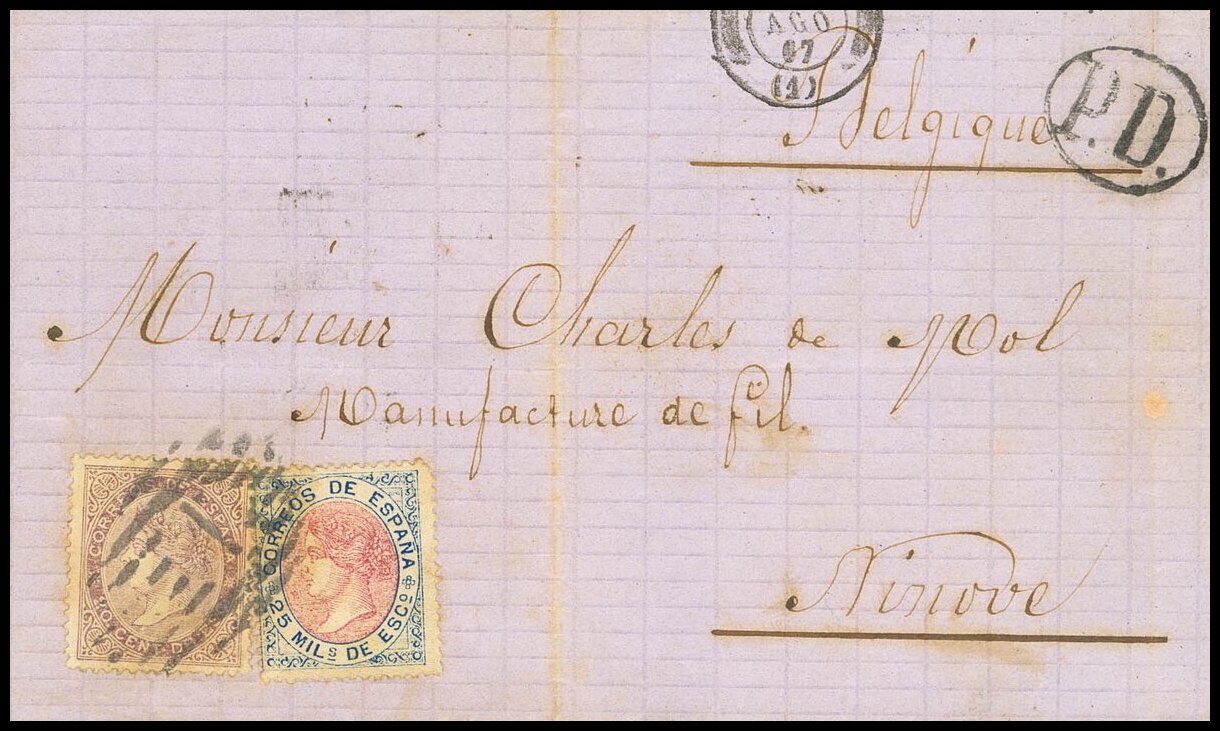 AGO
67
(1)
Belgique
P.D.
Monsieur Charles de Mol
Manufacture de fil.
Ninove
CORREOS DE ESPAÑA
CENT. DE
CORREOS DE ESPAÑA
25 MILS DE ESCO